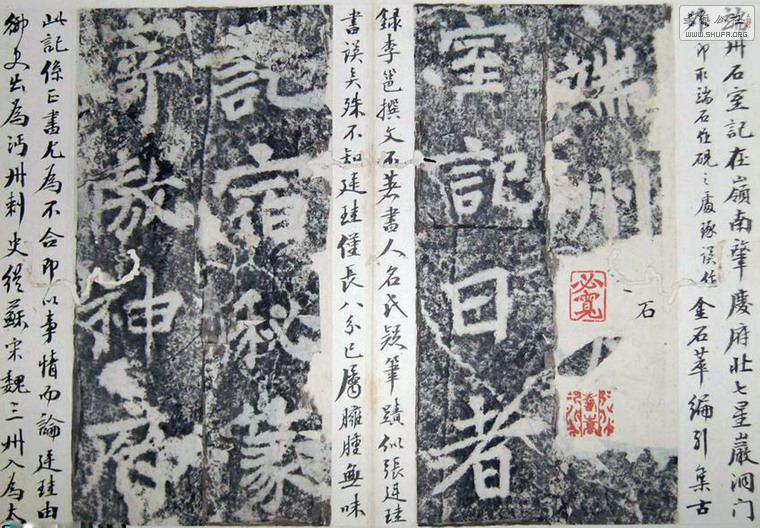 WWW.SHUFA.ORG
端州石室記在嶺南肇慶府北七星巖洞門
即取端石作硯之處琢誤作 金石萃編引集古
端州
石
室記日者
錄李邕撰文不著書人名氏疑筆蹟似張廷珪
書誤矣殊不知廷珪僅長八分已屬臃腫無味
記宿秘篆
神
此記係正書尤為不合即以事情而論廷珪由
御史出為沔州刺史從蘇宋魏三州入為太